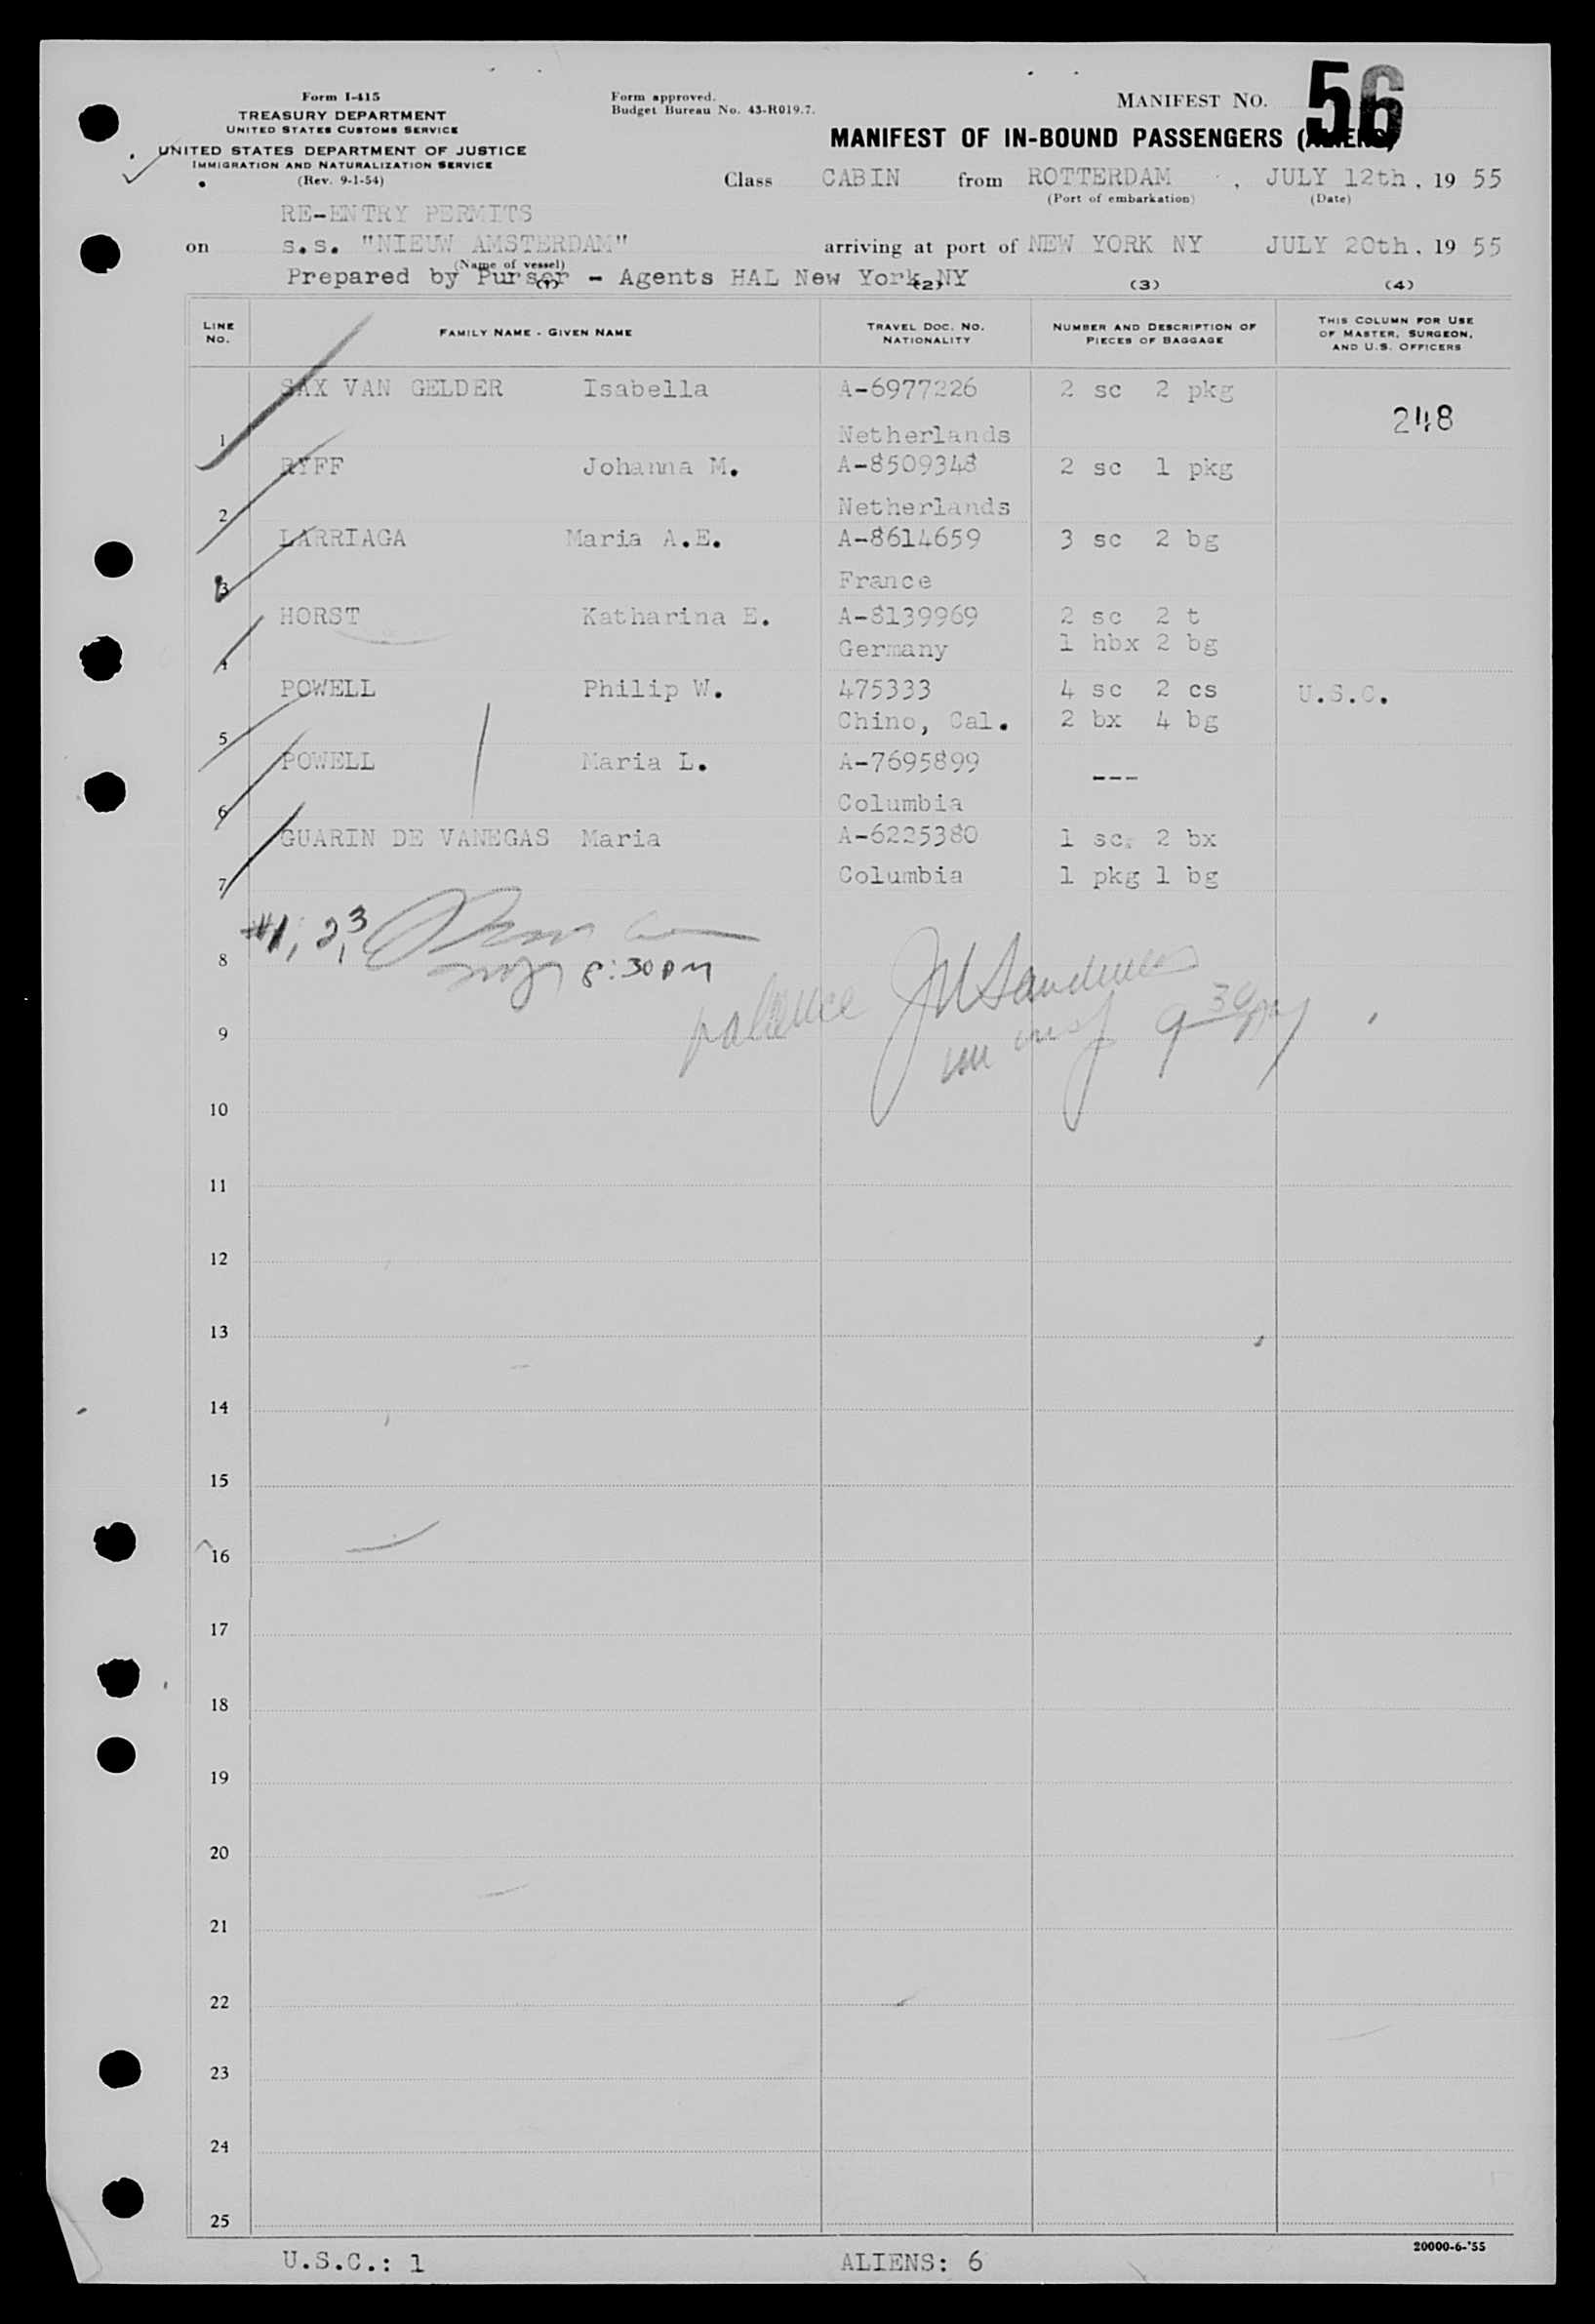 Form I-415
TREASURY DEPARTMENT
UNITED STATES CUSTOMS SERVICE
UNITED STATES DEPARTMENT OF JUSTICE
IMMIGRATION AND NATURALIZATION SERVICE
(Rev. 9-1-54)
Form approved.
Budget Bureau No. 43-R019.7.
MANIFEST NO. 56
MANIFEST OF IN-BOUND PASSENGERS (ALIENS)
Class CABIN from ROTTERDAM, JULY 12th, 19 55
(Port of embarkation) (Date)
RE-ENTRY PERMITS
on s.s. "NIEUW AMSTERDAM" arriving at port of NEW YORK NY JULY 20th, 19 55
(Name of vessel)
Prepared by Purser - Agents HAL New York, NY
(1) (2) (3) (4)
LINE NO. FAMILY NAME - GIVEN NAME TRAVEL DOC. NO. NATIONALITY NUMBER AND DESCRIPTION OF PIECES OF BAGGAGE THIS COLUMN FOR USE OF MASTER, SURGEON, AND U.S. OFFICERS
SAX VAN GELDER Isabella A-6977226 2 sc 2 pkg
248
1 Netherlands
RYFF Johanna M. A-8509348 2 sc 1 pkg
2 Netherlands
LARRIAGA Maria A.E. A-8614659 3 sc 2 bg
3 France
HORST Katharina E. A-8139969 2 sc 2 t
4 Germany 1 hbx 2 bg
POWELL Philip W. 475333 4 sc 2 cs U.S.C.
5 Chino, Cal. 2 bx 4 bg
POWELL Maria L. A-7695899 ---
6 Columbia
GUARIN DE VANEGAS Maria A-6225380 1 sc. 2 bx
7 Columbia 1 pkg 1 bg
#1, 2, 3
8 8:30 PM
9 9 30 pm
10
11
12
13
14
15
16
17
18
19
20
21
22
23
24
25
20000-6-'55
U.S.C.: 1 ALIENS: 6